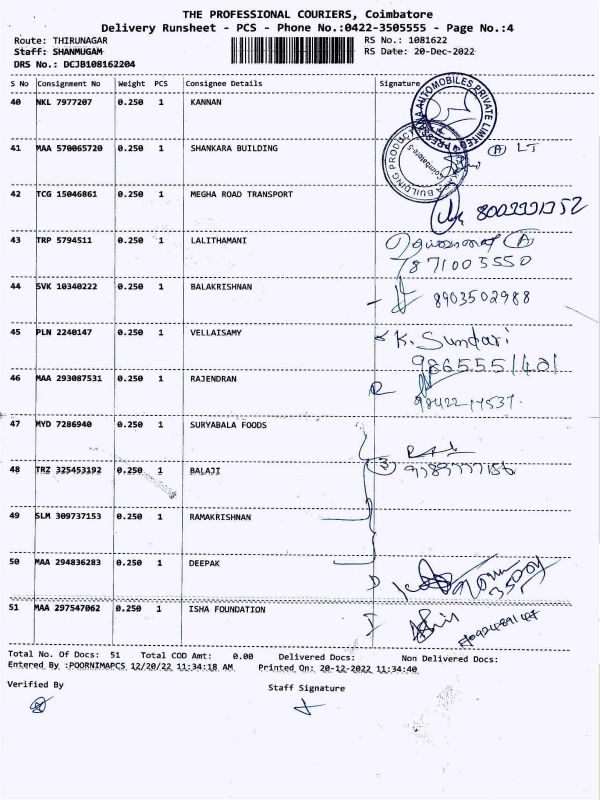 THE PROFESSIONAL COURIERS, Coimbatore
Delivery Runsheet - PCS - Phone No.:0422-3505555 - Page No.:4
Route: THIRUNAGAR RS No.: 1081622
Staff: SHANMUGAM RS Date: 20-Dec-2022
DRS No.: DCJB108162204
S No Consignment No Weight PCS Consignee Details Signature
40 NKL 7977207 0.250 1 KANNAN
AUTOMOBILES PRIVATE LIMITED
41 MAA 570065720 0.250 1 SHANKARA BUILDING A LT
BUILDING PRODUCT
Coimbatore-5
42 TCG 15046861 0.250 1 MEGHA ROAD TRANSPORT
43 TRP 5794511 0.250 1 LALITHAMANI
7871005550
44 SVK 10340222 0.250 1 BALAKRISHNAN
8903502988
45 PLN 2240147 0.250 1 VELLAISAMY K. Sundari
46 MAA 293087531 0.250 1 RAJENDRAN
47 MYD 7286940 0.250 1 SURYABALA FOODS
48 TRZ 325453192 0.250 1 BALAJI 3
49 SLM 309737153 0.250 1 RAMAKRISHNAN
50 MAA 294836283 0.250 1 DEEPAK
51 MAA 297547062 0.250 1 ISHA FOUNDATION
Total No. Of Docs: 51 Total COD Amt: 0.00 Delivered Docs: Non Delivered Docs:
Entered By :POORNIMAPCS 12/20/22 11:34:18 AM Printed On: 20-12-2022 11:34:40
Verified By Staff Signature